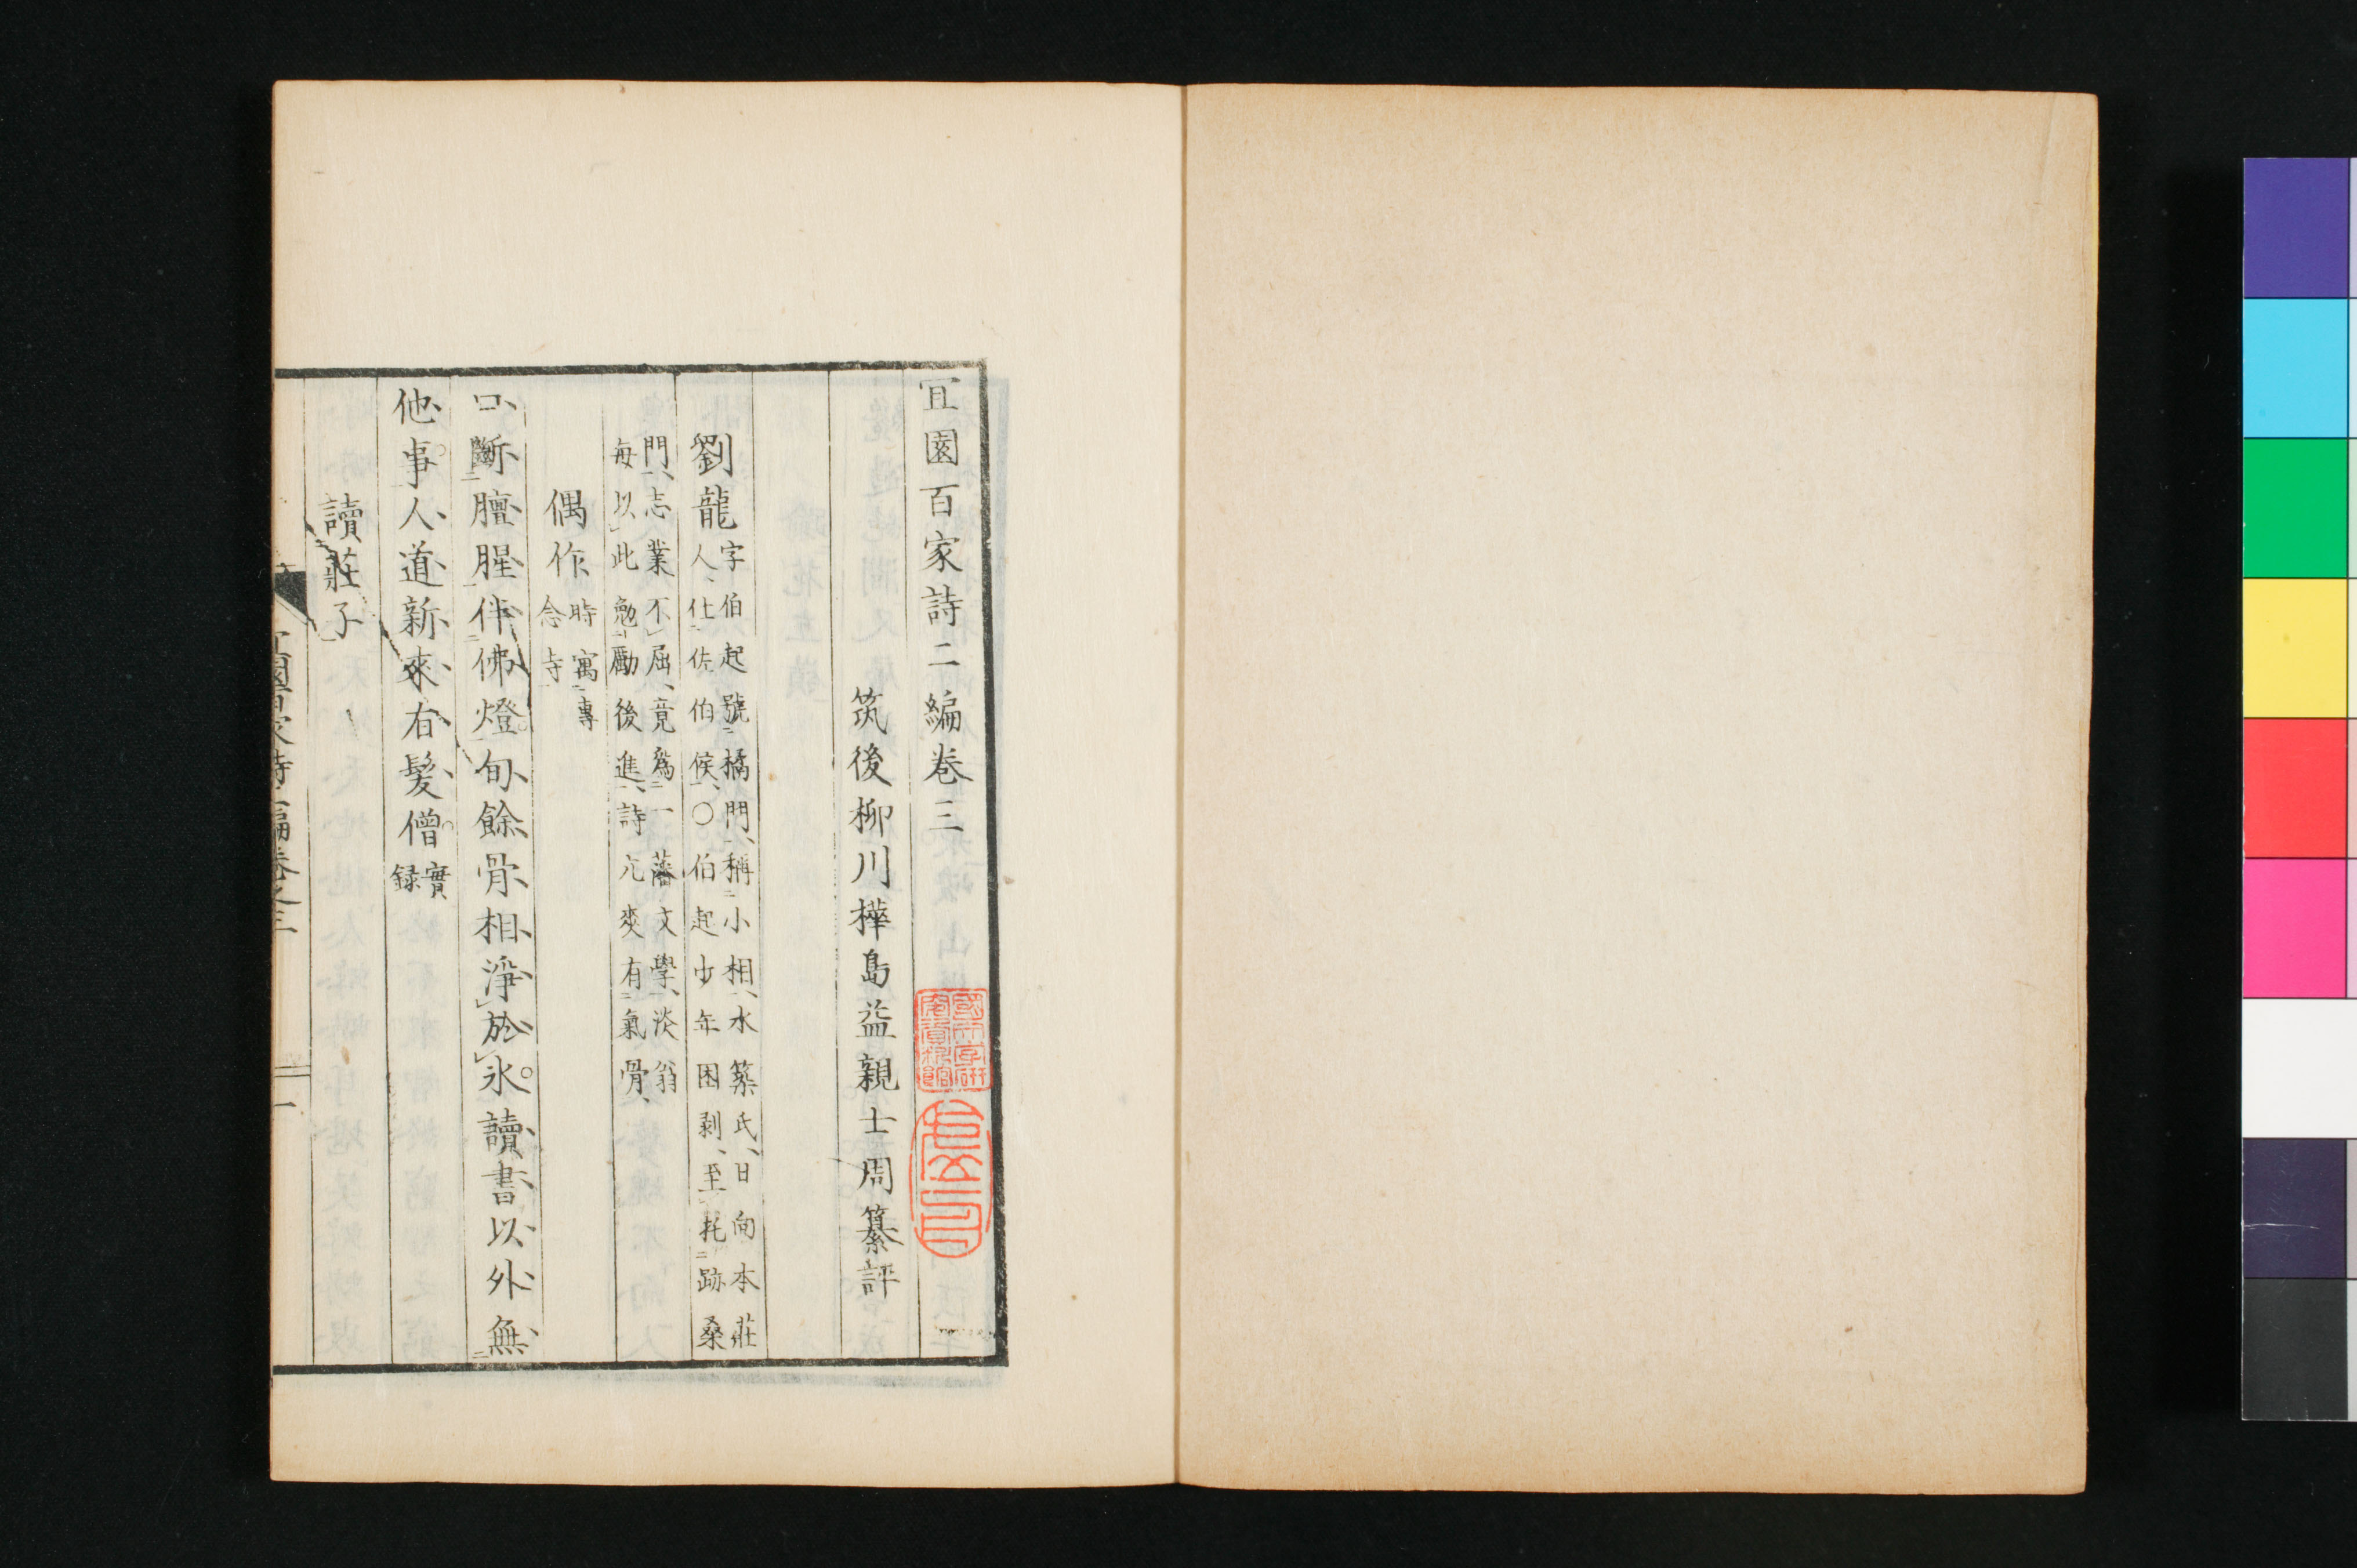 宜園百家詩二編卷三
筑後柳川樺島益親士周纂評
劉龍
字伯起號橘門、稱小相、水築氏、日向本莊
人、仕佐伯侯、○伯起少年困剥、至耗跡桑
門、志業不屈、竟爲一藩文學、淡翁
每以此勉勵後進、詩亢爽有氣骨、
偶作
時寓專
念寺
口斷膻腥伴佛燈旬餘骨相淨於氷讀書以外無
他事人道新來有髮僧
實
録
讀莊子
宜園百家詩二編卷之三
一